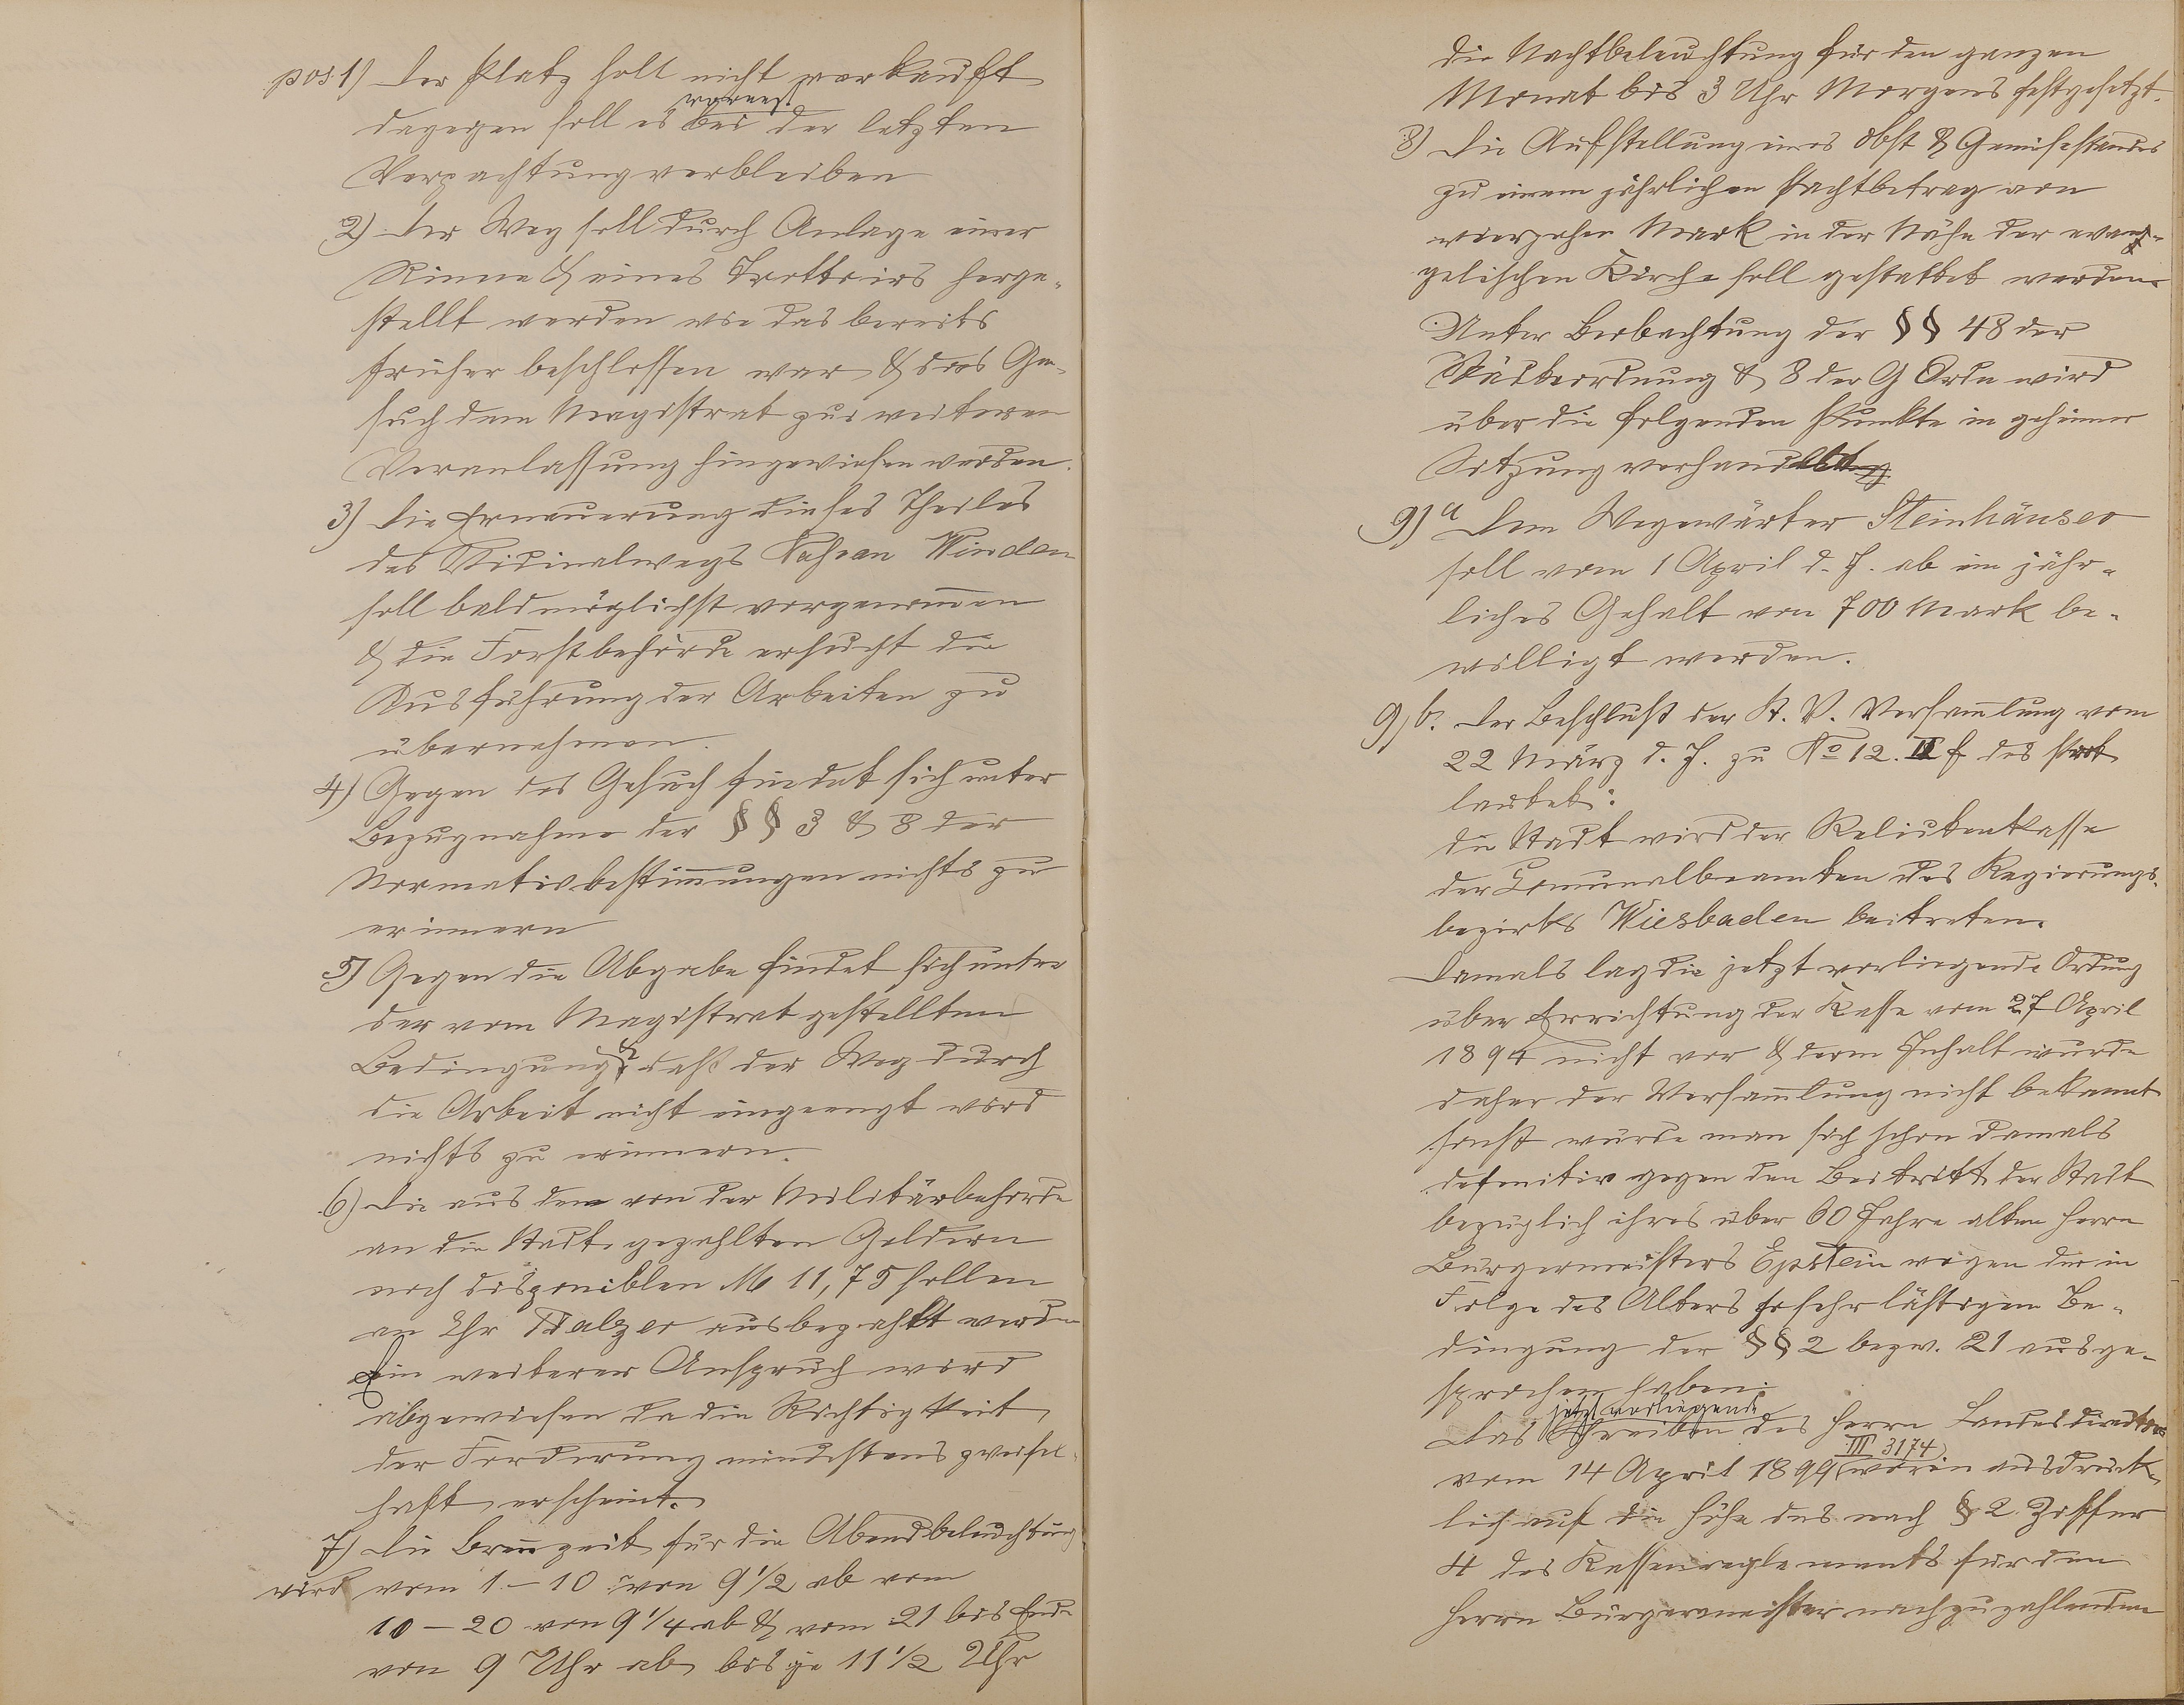 pos. 1) Der Platz soll nicht verkauft
dagegen soll es vorerst bei der letzten
Verpachtung verbleiben
2) Der Weg soll durch Anlage einer
Rinne & eines Trottoirs herge-
stellt werden wie das bereits
früher beschlossen war & das Ge-
such dem Magistrat zur weiteren
Veranlassung hingewiesen werden.
3) Die Erneuerung dieses Theiles
des Vicinalwegs Winden
soll baldmöglichst vorgenommen
& die Forstbehörde ersucht die
Ausführung der Arbeiten zu
übernehmen.
4) Gegen das Gesuch findet sich unter
Bezugnahme der §§ 3 & 8 der
Normativbestimmungen nichts zu
erinnern
5) Gegen die Abgabe findet sich unter
der vom Magistrat gestellten
Bedingung daß der Weg durch
die Arbeit nicht eingeengt wird
nichts zu erinnern.
6) Die aus den von der Militärbehörde
an die Stadt gezahlten Geldern
noch disponiblen M 11,75 sollen
an Chr Balzer ausbezahlt werden
Ein weiterer Anspruch wird
abgewiesen da die Richtigkeit
der Forderung mindestens zweifel-
haft erscheint.
7) Die Brennzeit für die Abendbeleuchtung
wird vom 1 – 10 von 9 1/2 ab vom
10 – 20 von 9 1/4 ab & vom 21 bis Ende
von 9 Uhr ab bis je 11 1/2 Uhr
die Nachtbeleuchtung für den ganzen
Monat bis 3 Uhr Morgens festgesetzt.
8) Die Aufstellung eines Obst & Gemüsestandes
zu einem jährlichen Pachtbetrag von
vierzehn Mark in der Nähe der evan-
gelischen Kirche soll gestattet werden.
Unter Beobachtung der §§ 48 der
Städteordnung & 8 der G Ordn wird
über die folgenden Punkte in geheimer
Sitzung verhandelt
9) a Dem Wegewärter Steinhäuser
soll vom 1 April d. J. ab ein jähr-
liches Gehalt von 700 Mark be-
willigt werden.
9) b. Der Beschluß der St. V. Versammlung vom
22 März d. J. zu No 12. II f des Prot
lautet:
die Stadt wird der Reliktenkasse
der Communalbeamten des Regierungs-
bezirks Wiesbaden beitreten.
Damals lag die jetzt vorliegende Ordnung
über Errichtung der Kasse vom 27 April
1894 nicht vor & deren Inhalt wurde
daher der Versammlung nicht bekannt
sonst würde man sich schon damals
definitiv gegen den Beitritt der Stadt
bezüglich ihres über 60 Jahre alten Herrn
Bürgermeisters Epstein wegen der in
Folge des Alters so sehr lästigen Be-
dingung der §§ 2 bezw. 21 ausge-
sprochen haben.
Das jetzt vorliegende Schreiben des Herrn Landesdirektors
vom 14 April 1899 III 3174 worin ausdrück-
lich auf die Höhe des nach § 2 Ziffer
4 des Kassenreglements für den
Herrn Bürgermeister nachzuzahlenden